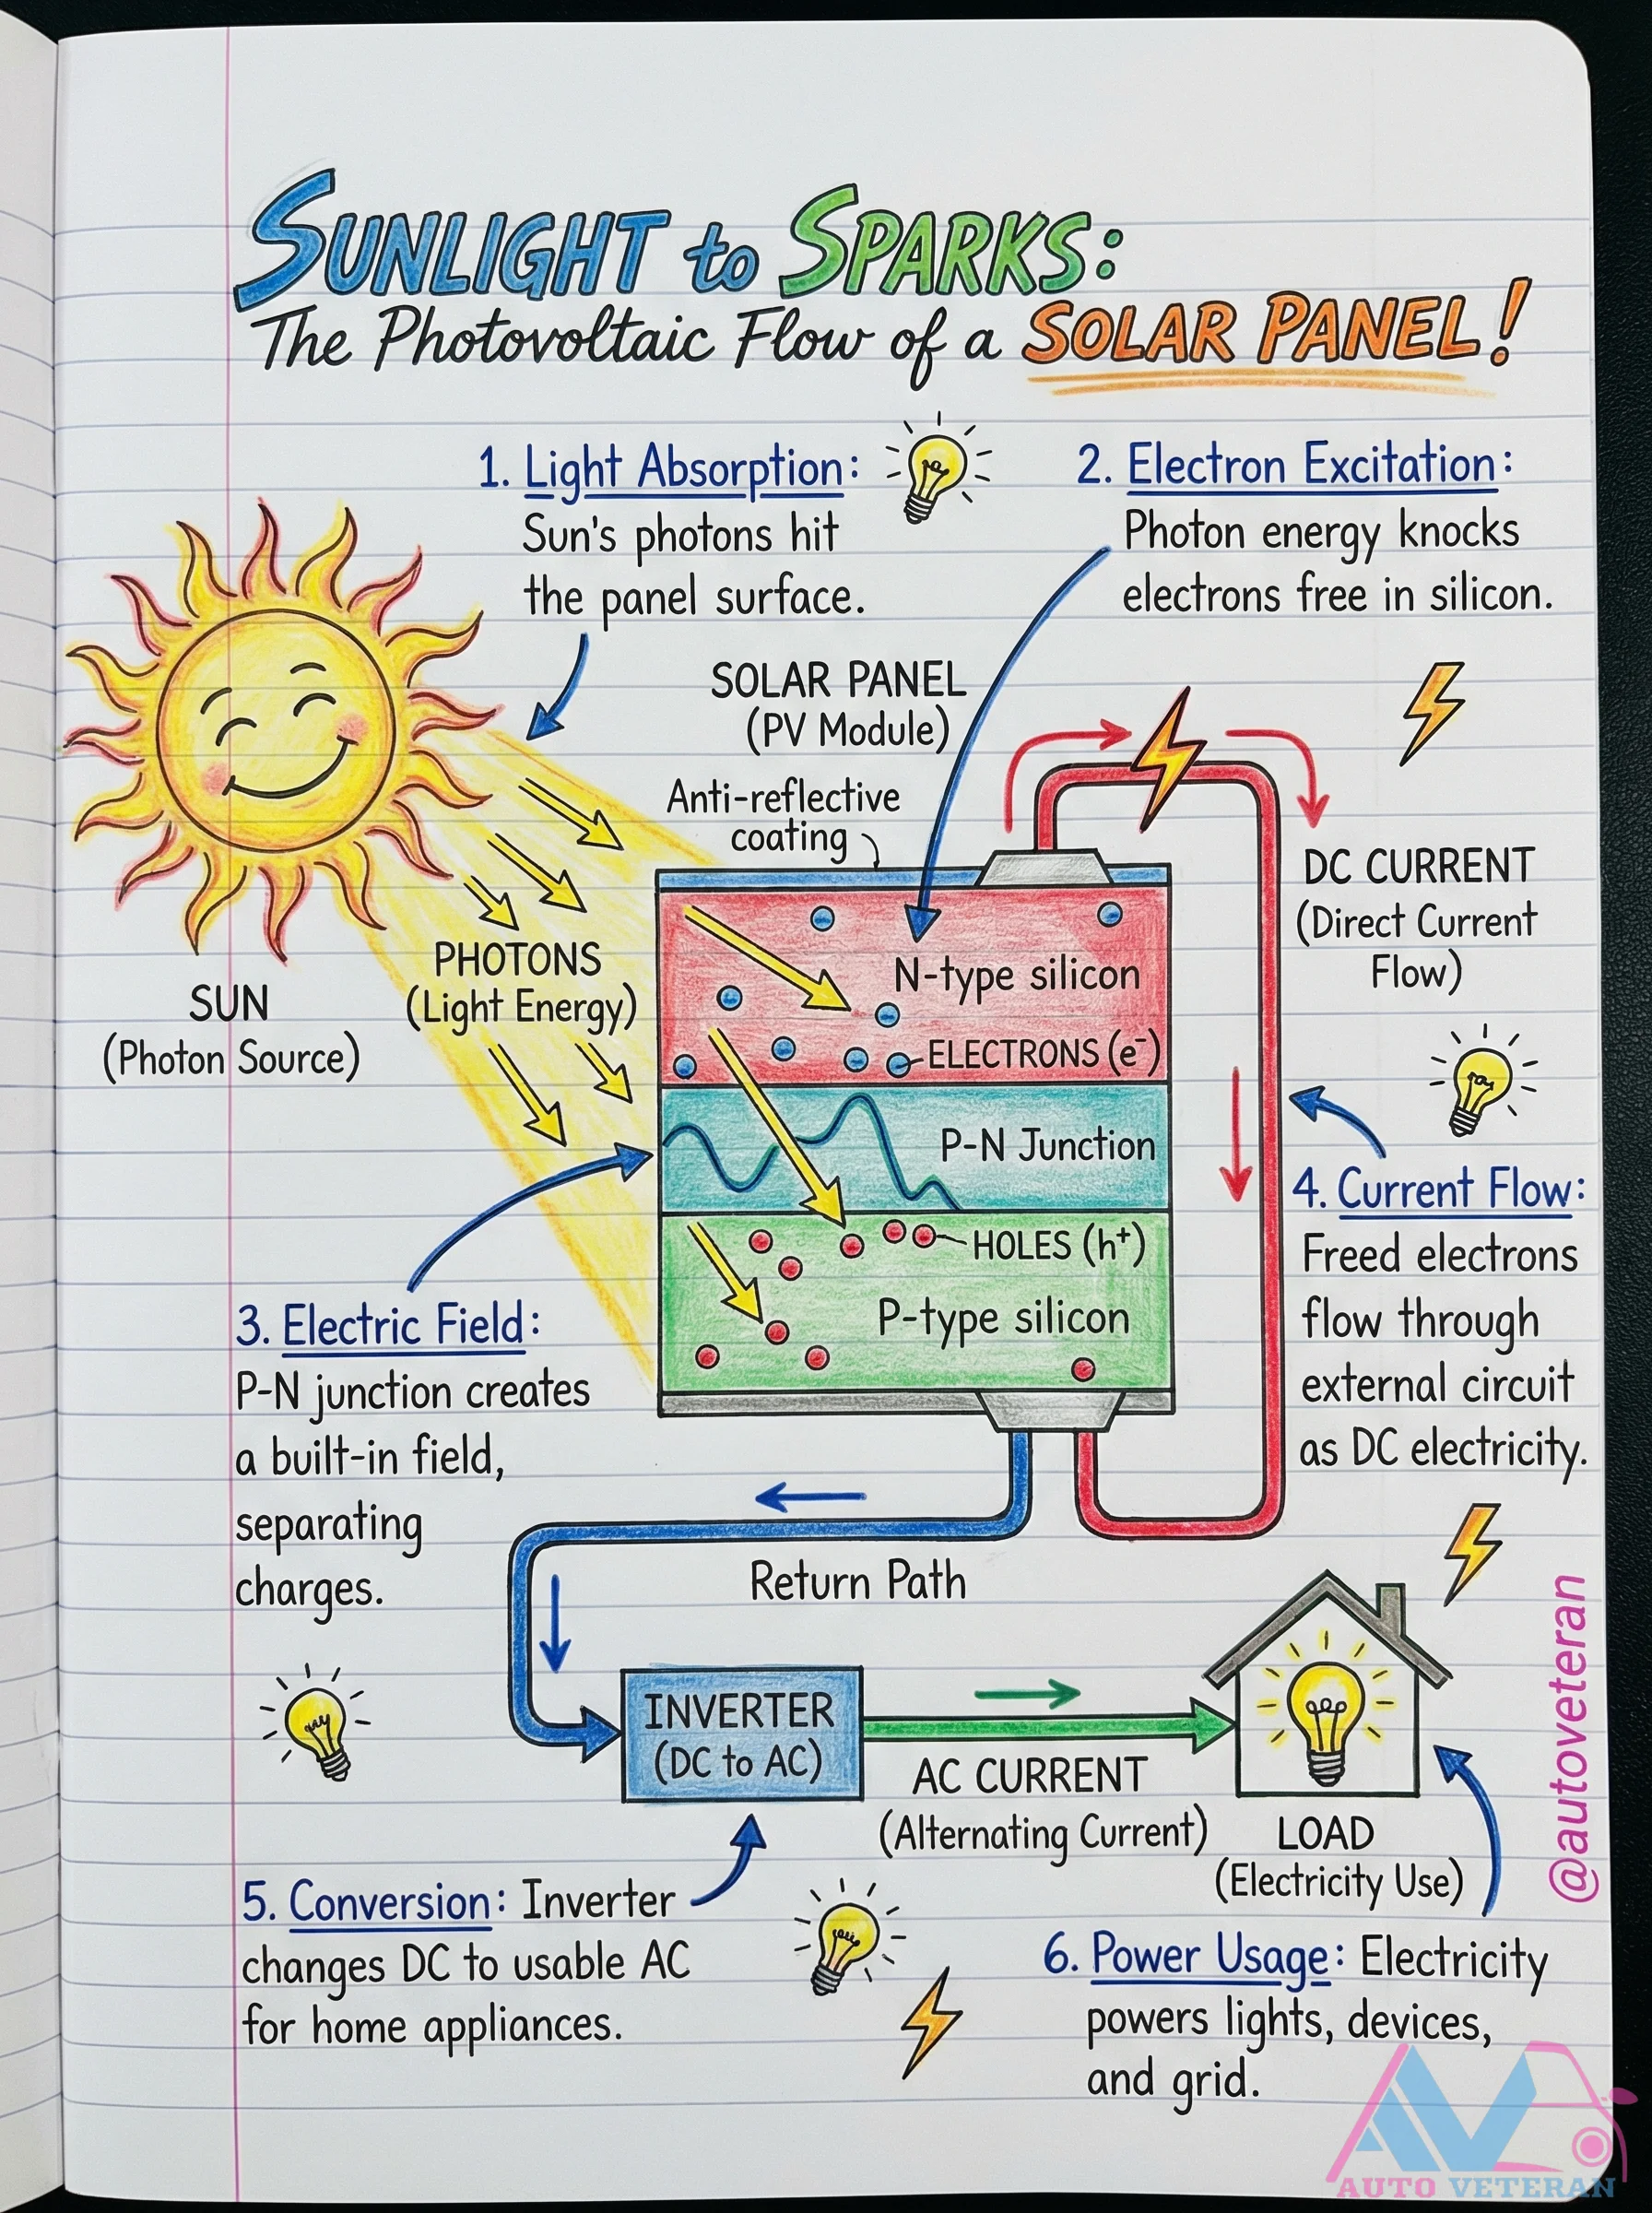 SUNLIGHT to SPARKS:
The Photovoltaic Flow of a SOLAR PANEL!
1. Light Absorption:
Sun's photons hit
the panel surface.
2. Electron Excitation:
Photon energy knocks
electrons free in silicon.
SOLAR PANEL
(PV Module)
Anti-reflective
coating
SUN
(Photon Source)
PHOTONS
(Light Energy)
N-type silicon
ELECTRONS (e⁻)
P-N Junction
HOLES (h⁺)
P-type silicon
DC CURRENT
(Direct Current
Flow)
3. Electric Field:
P-N junction creates
a built-in field,
separating
charges.
4. Current Flow:
Freed electrons
flow through
external circuit
as DC electricity.
Return Path
INVERTER
(DC to AC)
AC CURRENT
(Alternating Current)
LOAD
(Electricity Use)
5. Conversion: Inverter
changes DC to usable AC
for home appliances.
6. Power Usage: Electricity
powers lights, devices,
and grid.
@autoveteran
AV
AUTO VETERAN